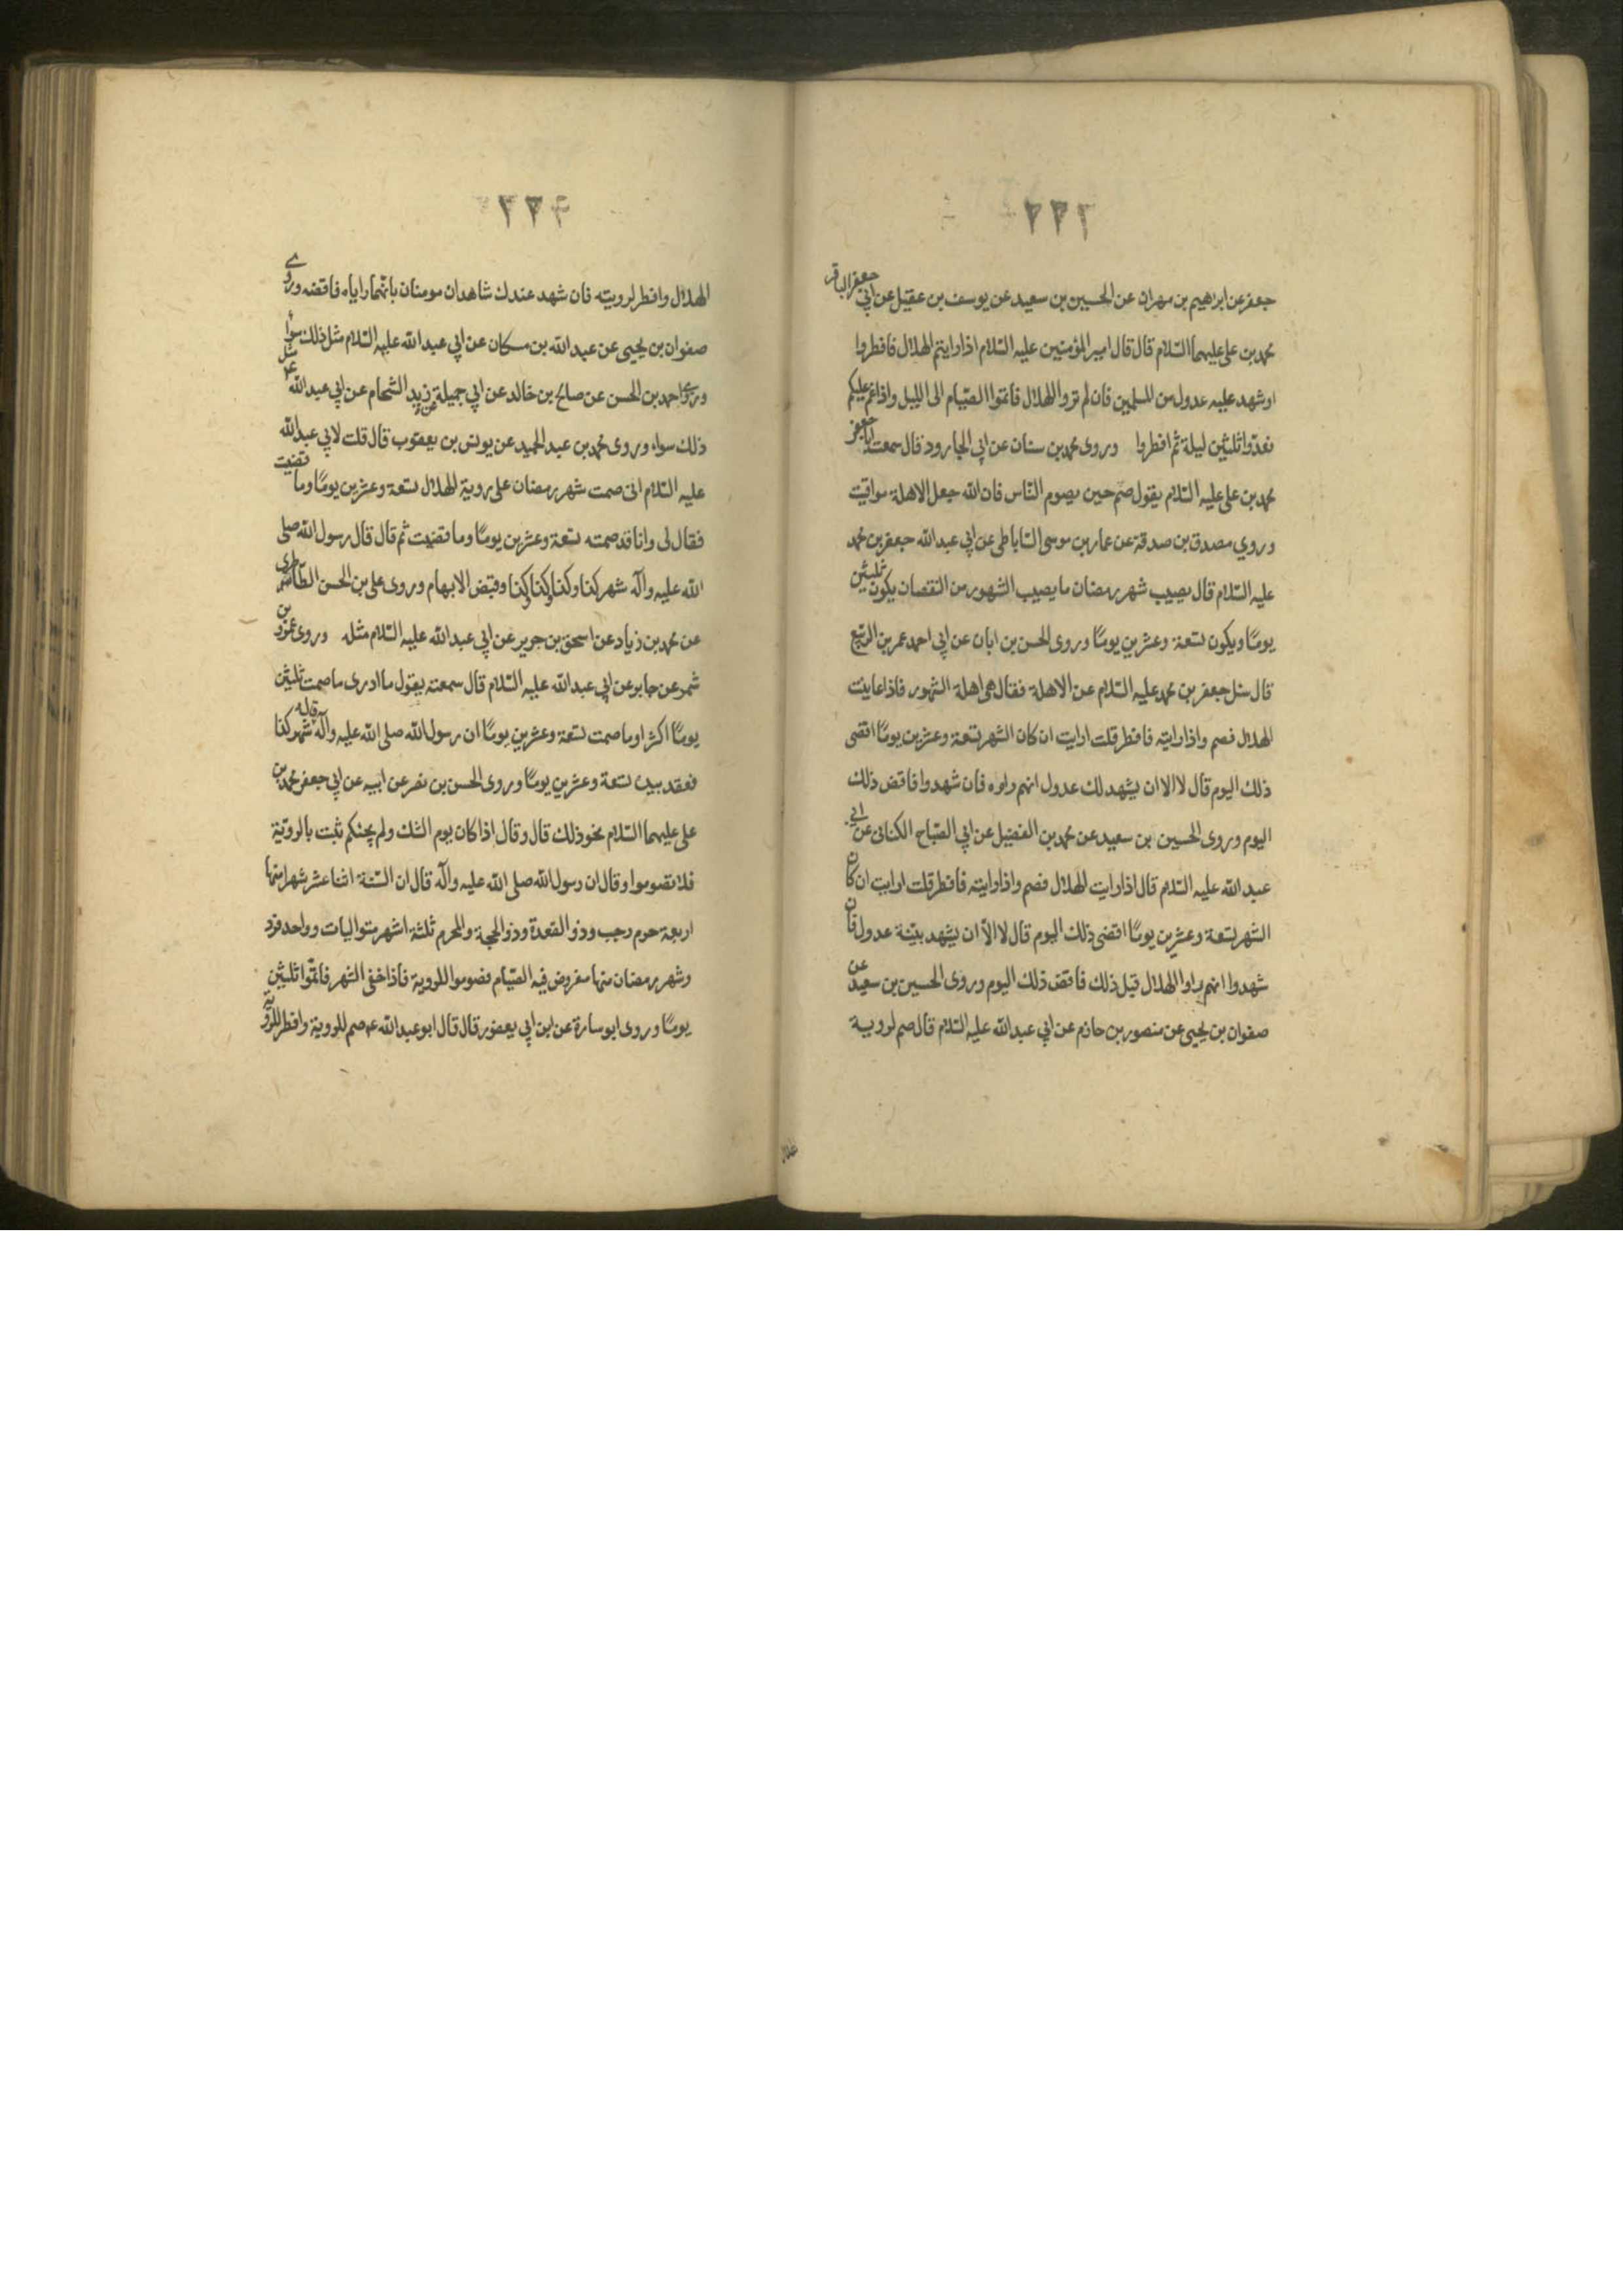 ٢٢٢
جعفر عن ابراهيم بن مهران عن الحسين بن سعيد عن يوسف بن عقيل عن ابي جعفر الباقر
محمد بن على عليهما السّلام قال قال امير المؤمنين عليه السّلام اذا رايتم الهلال فافطروا
او شهد عليه عدول من المسلمين فان لم تروا الهلال فاتموا الصّيام الى الليل واذا غم عليكم
فعدّوا ثلثين ليلة ثم افطروا وروى محمد بن سنان عن ابي الجارود قال سمعت ابا جعفر
محمد بن على عليه السّلام يقول صم حين يصوم النّاس فان الله جعل الاهلة مواقيت
وروي مصدق بن صدقة عن عمار بن موسى السّاباطى عن ابي عبد الله جعفر بن محمد
عليه السّلام قال يصيب شهر رمضان ما يصيب الشهور من النقصان يكون ثلثين
يومًا ويكون تسعة وعشرين يومًا وروى الحسن بن ابان عن ابي احمد عمر بن الربيع
قال سئل جعفر بن محمد عليه السّلام عن الاهلة فقال هى اهلة الشهور فاذا عاينت
الهلال فصم واذا رايته فافطر قلت ارايت ان كان الشهر تسعة وعشرين يومًا اقضى
ذلك اليوم قال لا الا ان يشهد لك عدول انهم راوه فان شهدوا فاقض ذلك
اليوم وروى الحسين بن سعيد عن محمد بن الفضيل عن ابي الصّباح الكنانى عن ابي
عبد الله عليه السّلام قال اذا رايت الهلال فصم واذا رايته فافطر قلت ارايت ان كان
الشهر تسعة وعشرين يومًا اقضى ذلك اليوم قال لا الّا ان يشهد بيّنة عدول فان
شهدوا انهم راوا الهلال قبل ذلك فاقض ذلك اليوم وروى الحسين بن سعيد عن
صفوان بن يحيى عن منصور بن حازم عن ابي عبد الله عليه السّلام قال صم لروية
الهلال وافطر لرويته فان شهد عندك شاهدان مومنان بانّهما راياه فاقضه وروى
صفوان بن يحيى عن عبد الله بن مسكان عن ابي عبد الله عليه السّلام مثل ذلك سواء
وروى احمد بن الحسن عن صالح بن خالد عن ابي جميلة عن زيد الشحام عن ابي عبد الله ع مثل
ذلك سواء وروى محمد بن عبد الحميد عن يونس بن يعقوب قال قلت لابي عبد الله
عليه السّلام انى صمت شهر رمضان على روية الهلال تسعة وعشرين يومًا وما قضيت
فقال لى وانا قد صمته تسعة وعشرين يومًا وما قضيت ثم قال قال رسول الله صلى
الله عليه وآله شهر كذا وكذا وكذا وكذا وقبض الابهام وروى على بن الحسن الطاطرى
عن محمد بن زياد عن اسحق بن جرير عن ابي عبد الله عليه السّلام مثله وروى عمرو بن
شمر عن جابر عن ابي عبد الله عليه السّلام قال سمعته يقول ما ادرى ما صمت ثلثين
يومًا اكثر او ما صمت تسعة وعشرين يومًا ان رسول الله صلى الله عليه وآله قال شهر كذا
فعقد بيده تسعة وعشرين يومًا وروى الحسن بن نصر عن ابيه عن ابي جعفر محمد بن
على عليهما السّلام نحو ذلك قال وقال اذا كان يوم الشك ولم يجئكم ثبت بالروية
فلا تصوموا وقال ان رسول الله صلى الله عليه وآله قال ان السّنة اثنا عشر شهرا منها
اربعة حرم رجب وذو القعدة وذو الحجة والمحرم ثلثة اشهر متواليات وواحد فرد
وشهر رمضان منها مفروض فيه الصّيام فصوموا للروية فاذا خفى الشهر فاتمّوا ثلثين
يومًا وروى ابو سارة عن ابن ابي يعفور قال قال ابو عبد الله ع صم للروية وافطر للروية